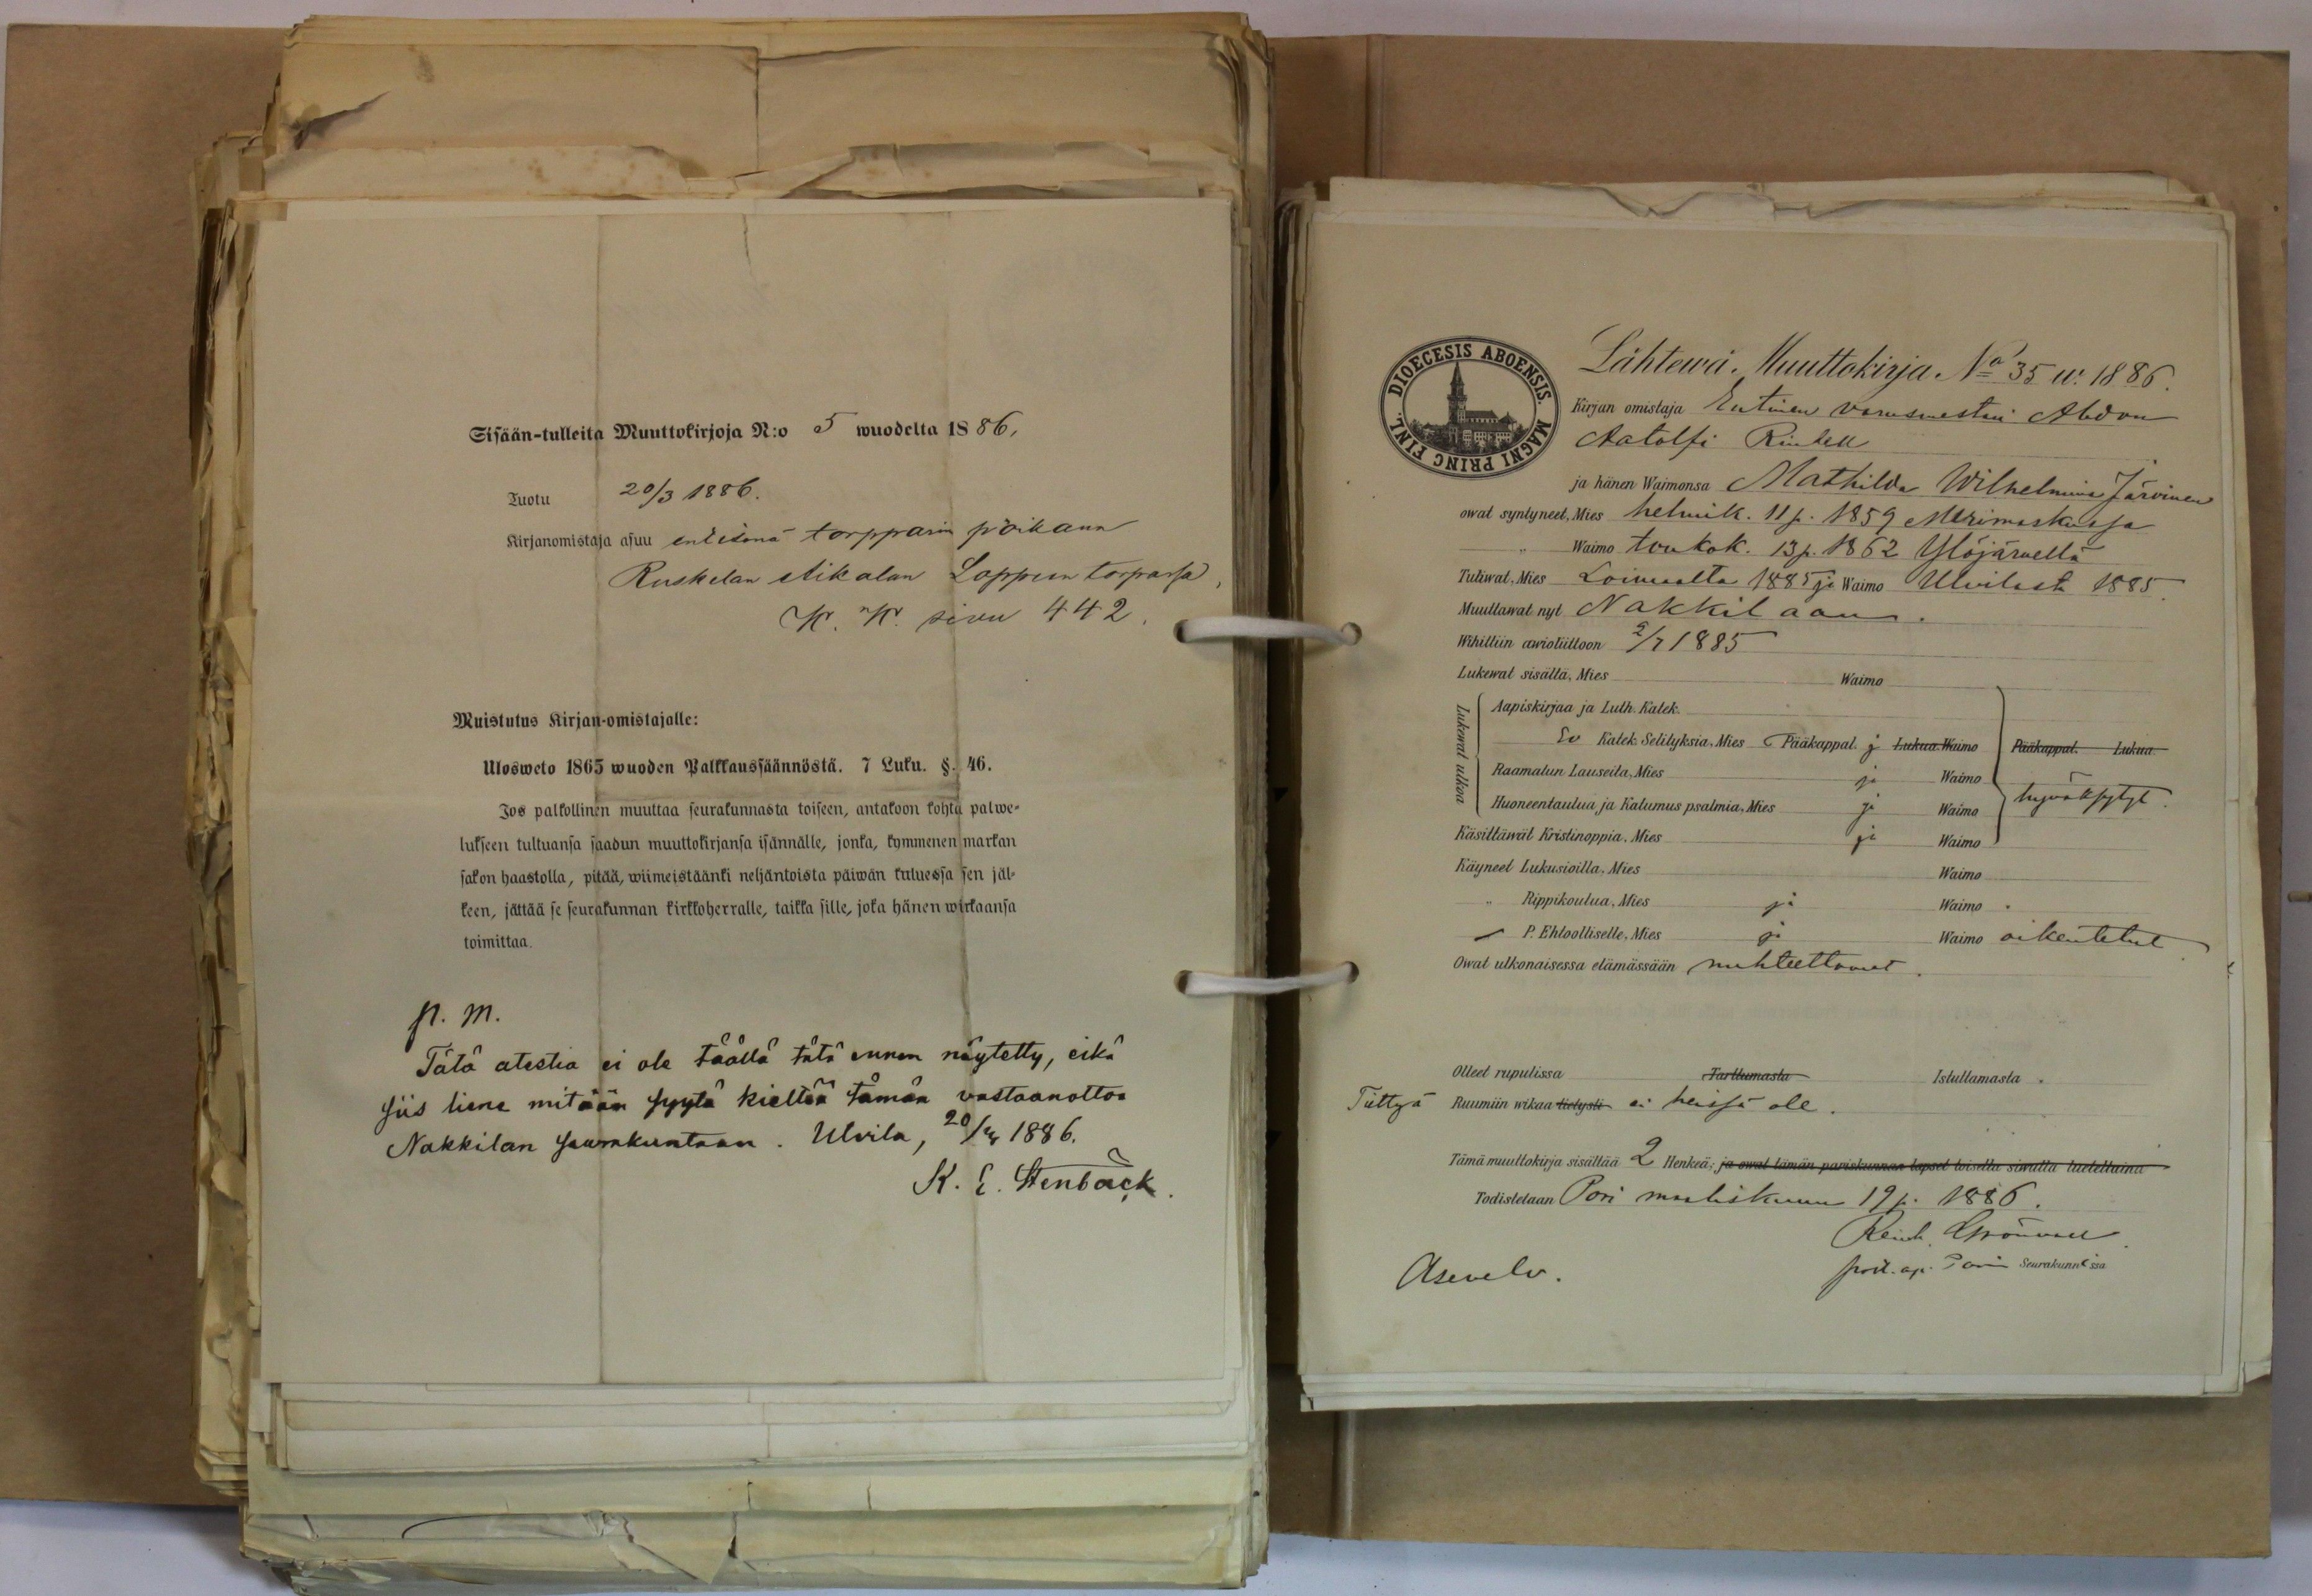 Sisään-tulleita Muuttokirjoja N:o 5 wuodelta 1886.
Tuotu 20/3 1886.
Kirjanomistaja asuu entisenä torpparin poikana
Ruskelan Aikalan Loppun torpassa,
K. K. sivu 442.
Muistutus Kirjan-omistajalle:
Ulosweto 1865 wuoden Palkkaussäännöstä. 7 Luku. §. 46.
Jos palkollinen muuttaa seurakunnasta toiseen, antakoon kohta palwe-
lukseen tultuansa saadun muuttokirjansa isännälle, jonka, kymmenen markan
sakon haastolla, pitää, wiimeistäänki neljäntoista päiwän kuluessa sen jäl-
keen, jättää se seurakunnan kirkkoherralle, taikka sille, joka hänen wirkaansa
toimittaa.
p. m.
Tätä atestia ei ole täällä tätä ennen näytetty, eikä
siis liene mitään syytä kieltää tämän vastaanottoa
Nakkilan seurakuntaan. Ulvila, 20/ 1886.
K. E. Stenbäck.
DIOECESIS ABOENSIS. MAGNI PRINC FINL.
Lähtewä Muuttokirja No 35 w. 1886.
Kirjan omistaja Entinen varusmestari Abdon
Aatolfi Rindell
ja hänen Waimonsa Mathilda Wilhelmina Järvinen
owat syntyneet, Mies helmik. 11 p. 1859 Merimaskussa
" Waimo toukok. 13 p. 1862 Ylöjärvellä
Tuliwat, Mies Loimaalta 1885 ja Waimo Ulvilasta 1885.
Muuttawat nyt Nakkilaan.
Wihittiin awioliittoon 2/7 1885
Lukewat sisältä, Mies Waimo
Lukewat ulkoa
Aapiskirjaa ja Luth. Katek.
Katek. Selityksiä, Mies Pääkappal. ja Lukua Waimo Pääkappal. Lukua
Raamatun Lauseita, Mies ja Waimo
hyväksytyt.
Huoneentaulua ja Katumus psalmia, Mies ja Waimo
Käsittäwät Kristinoppia, Mies ja Waimo
Käyneet Lukusioilla, Mies Waimo
" Rippikoulua, Mies ja Waimo
P. Ehtoolliselle, Mies ja Waimo oikeutetut
Owat ulkonaisessa elämässään nuhteettomat.
Olleet rupulissa Tarttumasta Istuttamasta
Tiettyä Ruumiin wikaa tietysti ei heissä ole.
Tämä muuttokirja sisältää 2 Henkeä; ja owat tämän pariskunnan lapset toisella siwulla lueteltuina
Todistetaan Pori maaliskuun 19 p. 1886.
Reinh. Grönvall
past. ap. Porin Seurakunnassa
Asevelv.